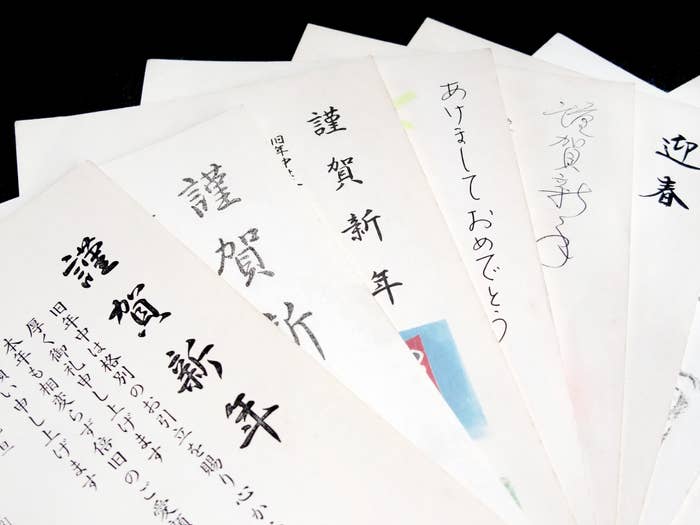 謹賀新年
旧年中は格別のお引立を賜り心か
厚く御礼申し上げます
本年も相変らず倍旧のご愛顧
願い申し上げます
元旦
謹賀新
謹賀新年
旧年中は
あけましておめでとう
謹賀新年
迎春